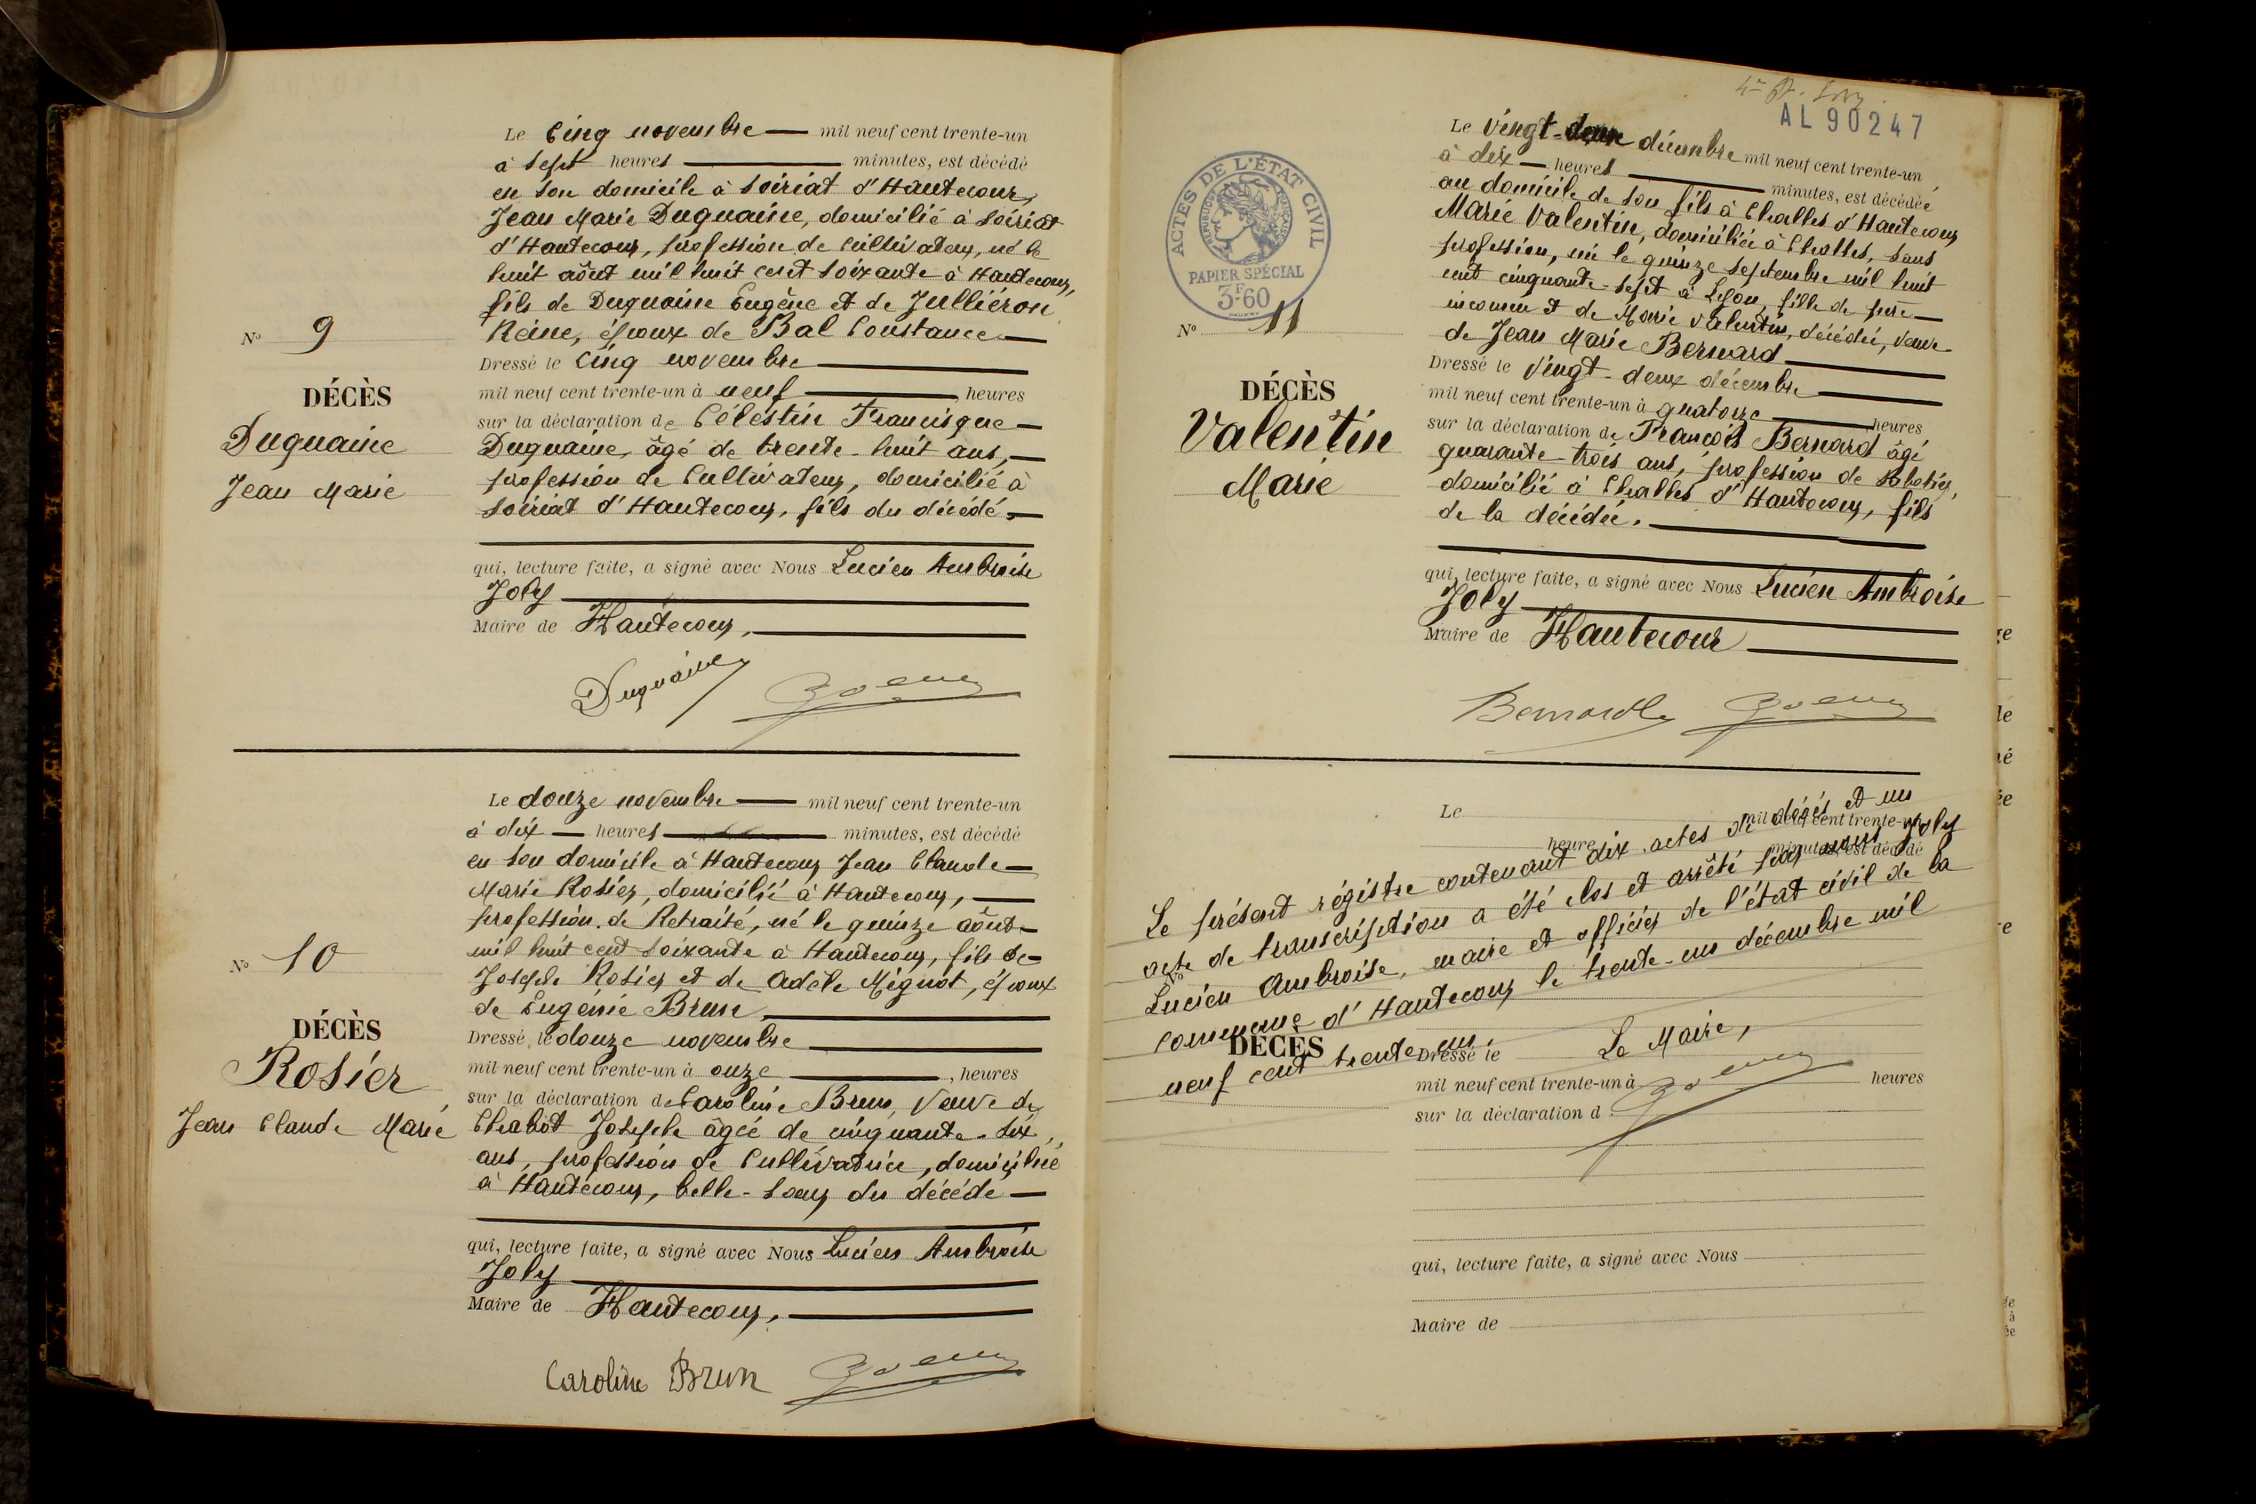 Le Cinq novembre mil neuf cent trente-un
à sept heures minutes, est décédé
en son domicile à Soiriat d'Hautecour,
Jean Marie Duquaine, domicilié à Soiriat
d'Hautecour, profession de Cultivateur, né le
huit août mil huit cent soixante à Hautecour,
fils de Duquaine Eugène et de Julliéron
Reine, époux de Bal Constance
Dressé le Cinq novembre
mil neuf cent trente-un à neuf heures
sur la déclaration de Célestin Francisque
Duquaine, âgé de trente-huit ans,
profession de Cultivateur, domicilié à
Soiriat d'Hautecour, fils du décédé,
qui, lecture faite, a signé avec Nous Lucien Ambroise
Joly
Maire de Hautecour,
No 9
DÉCÈS
Duquaine
Jean Marie
Duquaine
Le douze novembre mil neuf cent trente-un
à dix heures minutes, est décédé
en son domicile à Hautecour Jean Claude
Marie Rosier, domicilié à Hautecour,
profession de Retraité, né le quinze août
mil huit cent soixante à Hautecour, fils de
Joseph Rosier et de Adèle Mignot, époux
de Eugénie Brun,
Dressé le douze novembre
mil neuf cent trente-un à onze, heures
sur la déclaration de Caroline Brun, Veuve de
Chabot Joseph âgée de cinquante-six,
ans, profession de Cultivatrice, domiciliée
à Hautecour, belle-sœur du décédé
qui, lecture faite, a signé avec Nous Lucien Ambroise
Joly
Maire de Hautecour,
No 10
DÉCÈS
Rosier
Jean Claude Marie
Caroline Brun
AL 90247
ACTES DE L'ÉTAT CIVIL
RÉPUBLIQUE FRANÇAISE
PAPIER SPÉCIAL
3F60
Le Vingt-deux décembre mil neuf cent trente-un
à dix heures minutes, est décédée
au domicile de son fils à Challes d'Hautecour
Marie Valentin, domiciliée à Challes, sans
profession, née le quinze septembre mil huit
cent cinquante-sept à Lyon, fille de père
inconnu et de Marie Valentin, décédée, veuve
de Jean Marie Bernard
Dressé le Vingt-deux décembre
mil neuf cent trente-un à quatorze heures
sur la déclaration de François Bernard âgé
quarante-trois ans, profession de
domicilié à Challes d'Hautecour, fils
de la décédée.
qui, lecture faite, a signé avec Nous Lucien Ambroise
Joly
Maire de Hautecour
No 11
DÉCÈS
Valentin
Marie
Bernard
Le mil neuf cent trente-un
heure minutes, est décédé
Le présent régistre contenant dix actes de décés et un
acte de transcription a été clos et arrêté par nous Joly
Lucien Ambroise, maire et officier de l'état civil de la
commune d'Hautecour le trente-un décembre mil
neuf cent trente-un.
Le Maire,
No
DÉCÈS
Dressé le
mil neuf cent trente-un à heures
sur la déclaration d
qui, lecture faite, a signé avec Nous
Maire de